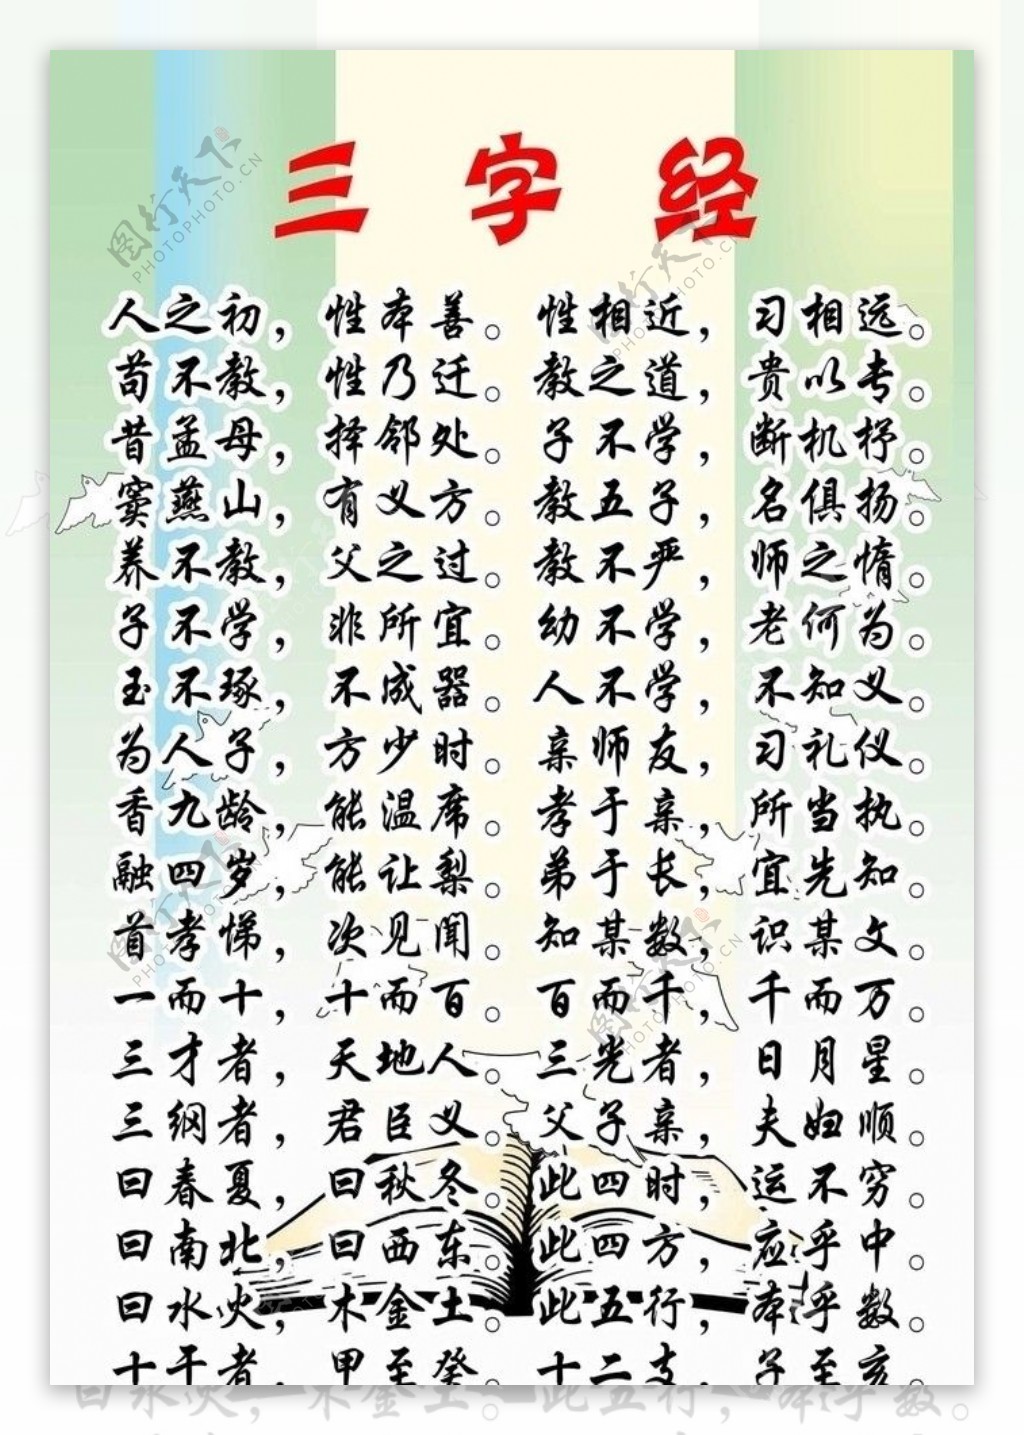 三字经
人之初，性本善。性相近，习相远。
苟不教，性乃迁。教之道，贵以专。
昔孟母，择邻处。子不学，断机杼。
窦燕山，有义方。教五子，名俱扬。
养不教，父之过。教不严，师之惰。
子不学，非所宜。幼不学，老何为。
玉不琢，不成器。人不学，不知义。
为人子，方少时。亲师友，习礼仪。
香九龄，能温席。孝于亲，所当执。
融四岁，能让梨。弟于长，宜先知。
首孝悌，次见闻。知某数，识某文。
一而十，十而百。百而千，千而万。
三才者，天地人。三光者，日月星。
三纲者，君臣义。父子亲，夫妇顺。
曰春夏，曰秋冬。此四时，运不穷。
曰南北，曰西东。此四方，应乎中。
曰水火，木金土。此五行，本乎数。
十干者，甲至癸。十二支，子至亥。
曰水火，木金土。此五行，本乎数。
图行天下
PHOTOPHOTO.CN
图行天下
PHOTOPHOTO.CN
图行天下
PHOTOPHOTO.CN
图行天下
PHOTOPHOTO.CN